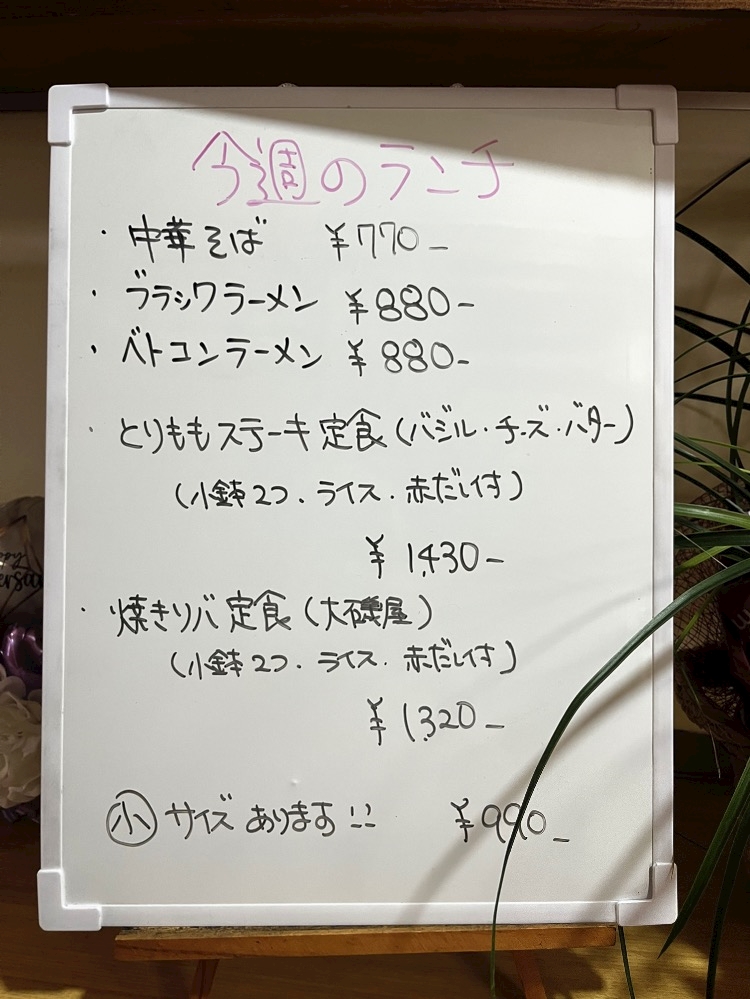 今週のランチ
・中華そば ¥770-
・ブラックラーメン ¥880-
・ベトコンラーメン ¥880-
・とりももステーキ定食(バジル・チーズ・バター)
(小鉢2コ・ライス・赤だし付)
¥1,430-
・焼きリバ定食(大磯屋)
(小鉢2コ・ライス・赤だし付)
¥1,320-
小サイズあります!! ¥990-